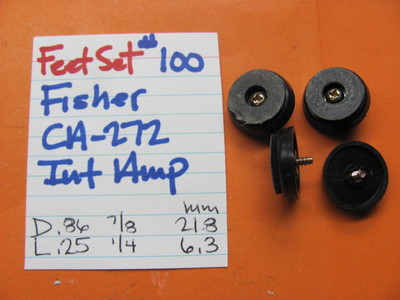 Feet Set #100
Fisher
CA-272
Int Amp
mm
D .86 7/8 21.8
L .25 1/4 6.3